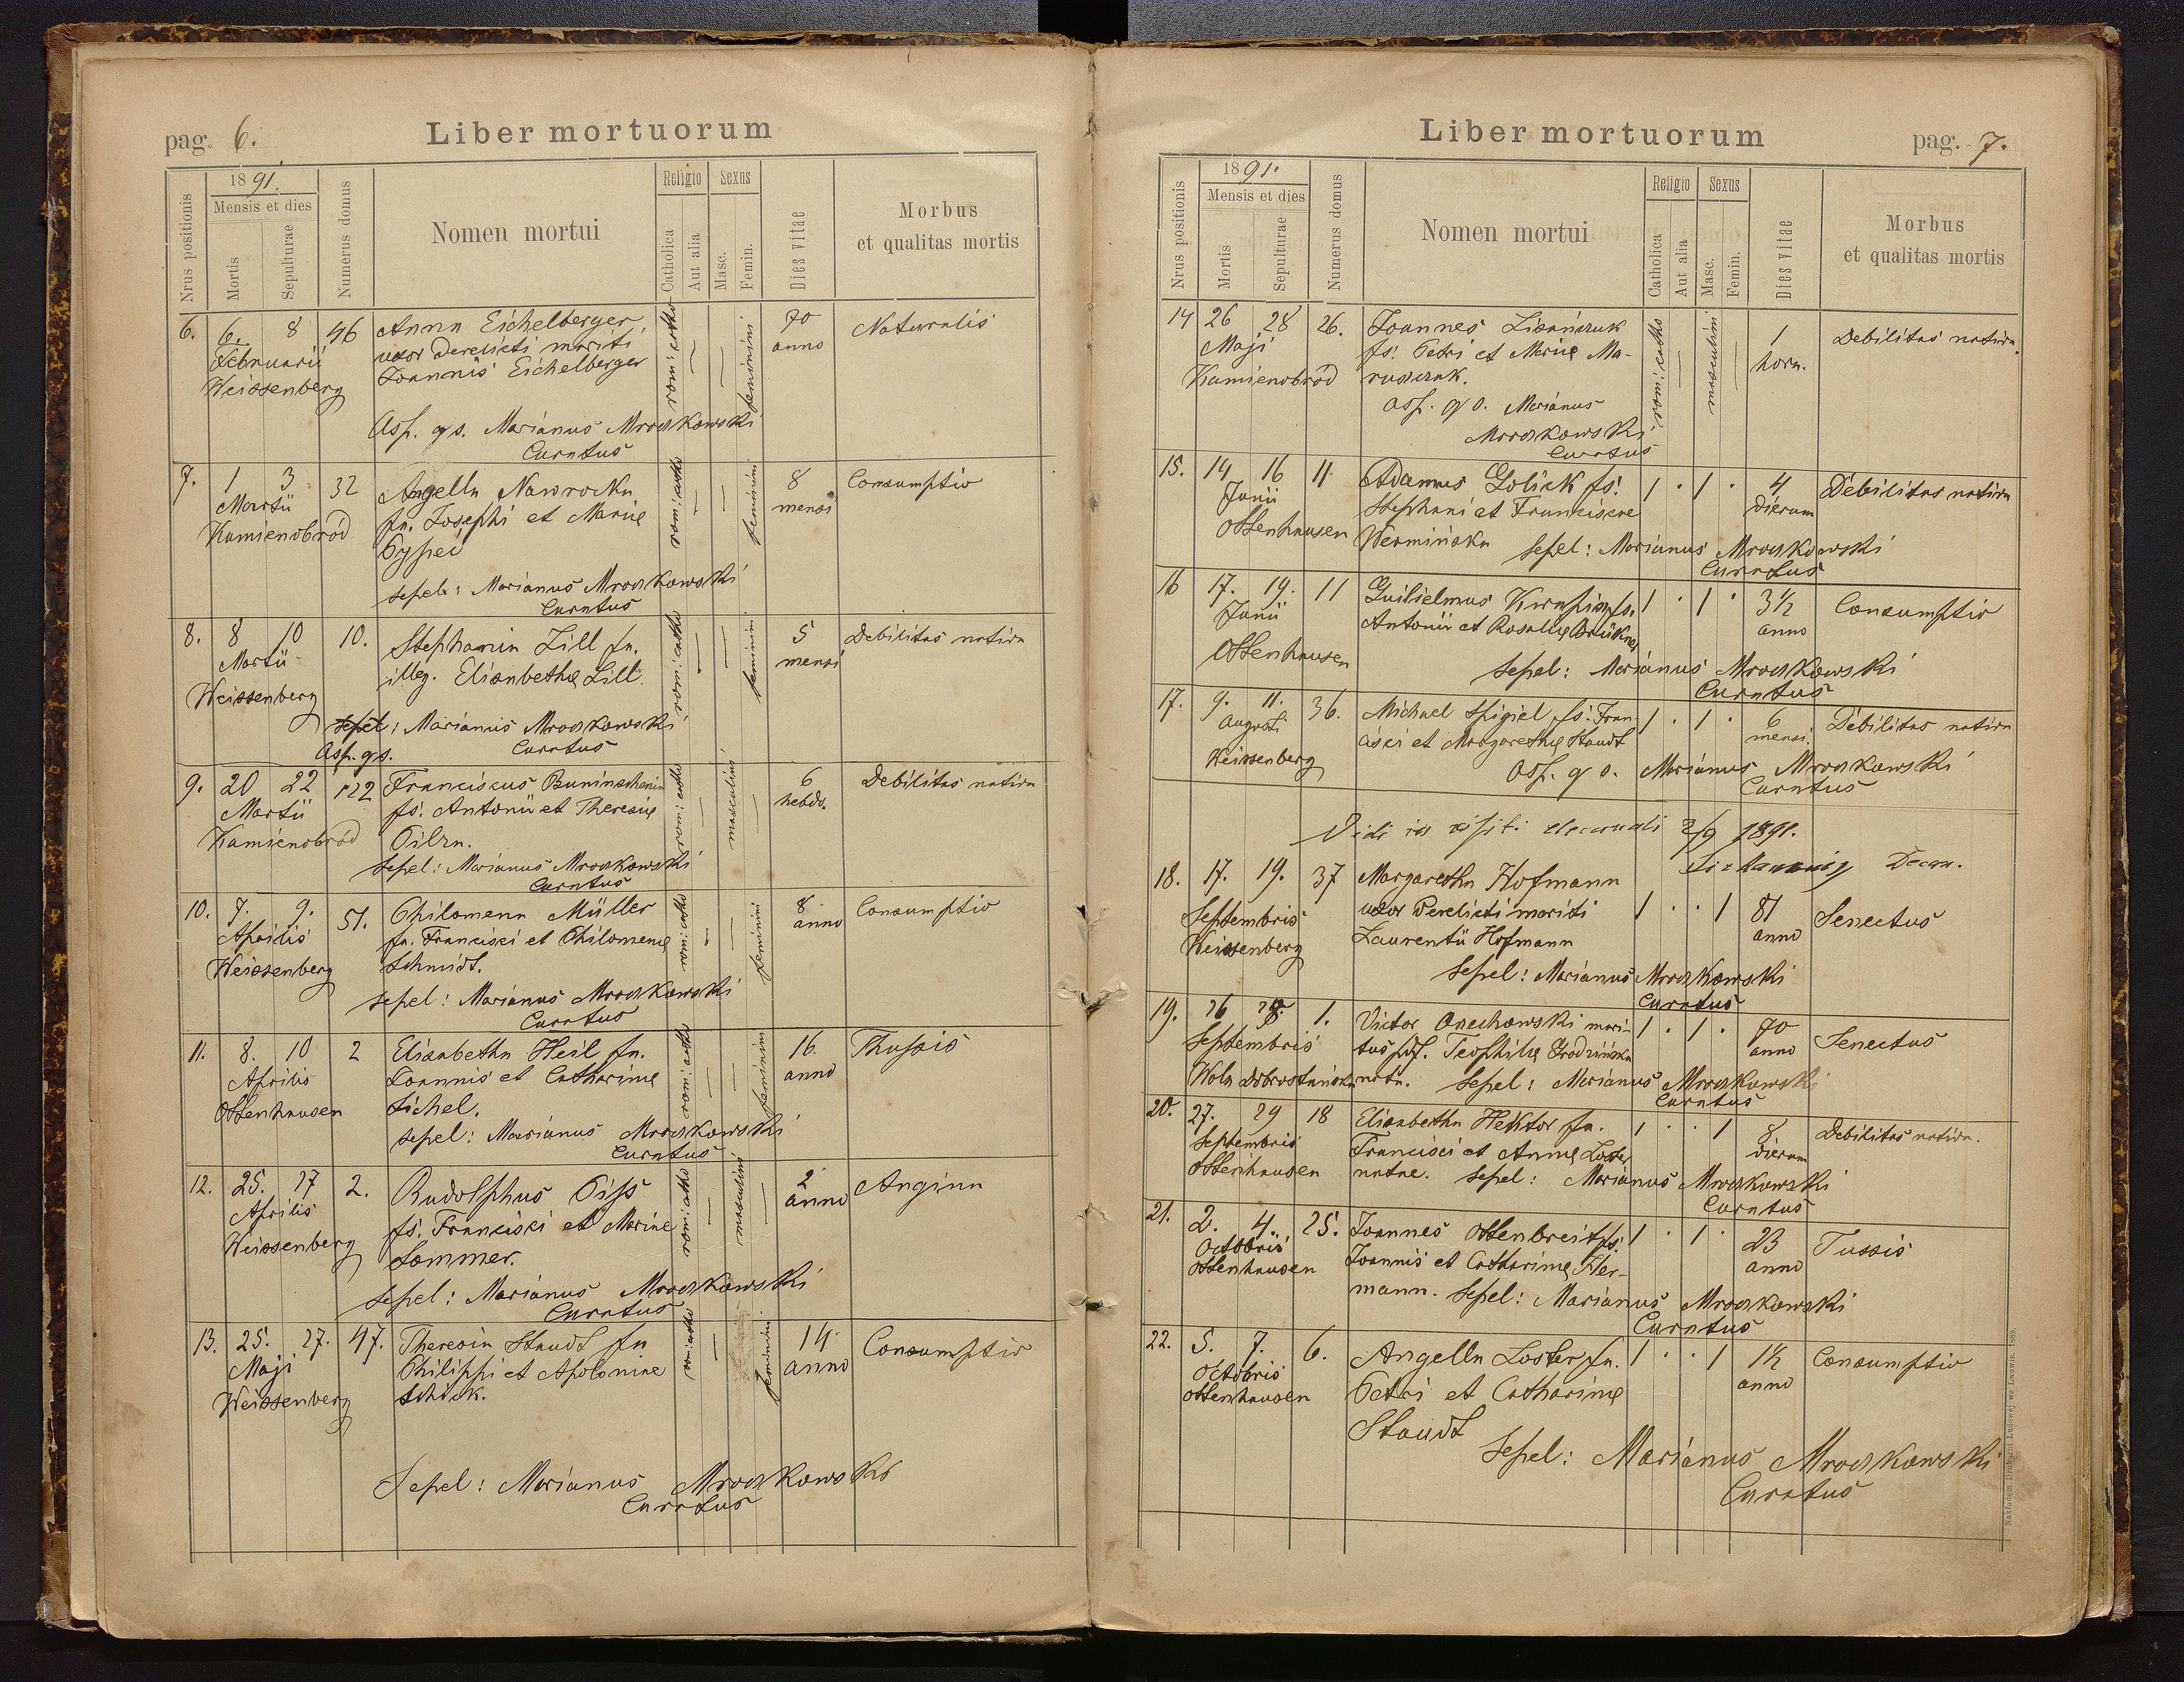 pag. 6.
Liber mortuorum
Nrus positionis
1891.
Mensis et dies
Mortis
Sepulturae
Numerus domus
Nomen mortui
Religio
Catholica
Aut alia
Sexus
Masc.
Femin.
Dies vitae
Morbus
et qualitas mortis
6. 6. 8 46 Anna Eichelberger rom: catho feminini 70 Naturalis
Februarii uxor derelicti mariti anno
Weissenberg Joannis Eichelberger
Asp. gs. Marianus Mroczkowski
Curatus
7. 1 3 32 Angella Nawrocka rom: catho feminini 8 Consumptio
Martii fa. Josephi et Mariæ mensi
Kamienobród
sepel: Marianus Mroczkowski
Curatus
8. 8 10 10. Stephania Lill fa. rom: catho feminini 5 Debilitas nativa
Martii illeg. Elisabethæ Lill. mensi
Weissenberg
sepel: Marianus Mroczkowski
Asp. gs. Curatus
9. 20 22 122 Franciscus rom: catho masculini 6 Debilitas nativa
Martii fs. Antonii et Theresiæ hebdo.
Kamienobród Pilzn.
sepel: Marianus Mroczkowski
Curatus
10. 7. 9. 51. Philomena Müller rom: catho feminini 8 Consumptio
Aprilis fa. Francisci et Philomenæ anno
Weissenberg Schmidt.
sepel: Marianus Mroczkowski
Curatus
11. 8. 10 2 Elisabetha Heil fa. rom: catho feminini 16. Thussis
Aprilis Joannis et Catharinæ anno
Ottenhausen Sichel.
sepel: Marianus Mroczkowski
Curatus
12. 25. 27 2. Rudolphus Piss rom: catho masculini 2 Angina
Aprilis fs. Francisci et Mariae anno
Weissenberg Sommer.
sepel: Marianus Mroczkowski
Curatus
13. 25. 27. 47. Theresia Staudt fa rom: catho feminini 14. Consumptio
Maji Philippi et Apoloniae anno
Weissenberg Schick.
Sepel: Marianus Mroczkowski
Curatus
Liber mortuorum
pag. 7.
Nrus positionis
1891.
Mensis et dies
Mortis
Sepulturae
Numerus domus
Nomen mortui
Religio
Catholica
Aut alia
Sexus
Masc.
Femin.
Dies vitae
Morbus
et qualitas mortis
14 26 28 26. Joannes Lisańczuk rom: catho masculini 1 Debilitas nativa.
Maji fs. Petri et Mariæ Ma- hora.
Kamienobród rusczak.
Asp. gs. Marianus
Mroczkowski
Curatus
15. 14 16 11 Adamus Golick fs. 1 . 1 . 4 Debilitas nativa
Junii Stephani et Franciscae dierum
Ottenhausen Wermińska sepel: Marianus Mroczkowski
Curatus
16 17. 19. 11 Guilielmus fs. 1 . 1 . 3 1/2 Consumptio
Junii Antonii et Rosaliæ Brükner anno
Ottenhausen
sepel: Marianus Mroczkowski
Curatus
17. 9. 11. 36. Michael Spigiel fs. Fran- 1 . 1 . 6 Debilitas nativa
Augusti cisci et Margarethæ Staudt mensi.
Weissenberg
Asp. gs. Marianus Mroczkowski
Curatus
Vidi in visiti decanali 2/9 1891.
Decan.
18. 17. 19. 37 Margaretha Hofmann
Septembris uxor derelicti mariti 1 . . 1 81 Senectus
Weissenberg Laurentii Hofmann anno
Sepel: Marianus Mroczkowski
Curatus
19. 26 28. 1. Victor Orzechowski mari- 1 . 1 . 70 Senectus
Septembris tus Teophilæ Grodzińska anno
Wola Dobrostańska nata. Sepel: Marianus Mroczkowski
Curatus
20. 27. 29 18 Elisabetha Hektor fa. 1 . . 1 8 Debilitas nativa.
Septembris Francisci et Annæ Loster dierum
Ottenhausen natae. sepel: Marianus Mroczkowski
Curatus
21. 2. 4. 25. Joannes Ottenbreit fs. 1 . 1 . 23 Tussis
Octobris Joannis et Catharinæ Her- anno
Ottenhausen mann. Sepel: Marianus Mroczkowski
Curatus
22. 5. 7. 6. Angella Loster fa. 1 . . 1 1 1/2 Consumptio
Octobris Petri et Catharinæ anno
Ottenhausen Staudt
Sepel: Marianus Mroczkowski
Curatus
Nakładem Drukarni Ludowej we Lwowie. 1888.